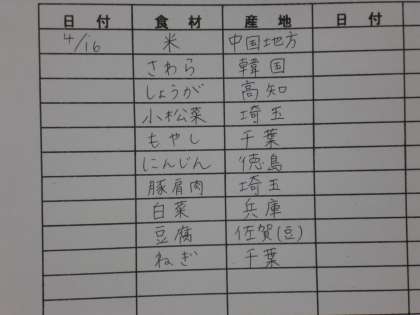 日付 食材 産地 日付
4/16 米 中国地方
さわら 韓国
しょうが 高知
小松菜 埼玉
もやし 千葉
にんじん 徳島
豚肩肉 埼玉
白菜 兵庫
豆腐 佐賀(豆)
ねぎ 千葉